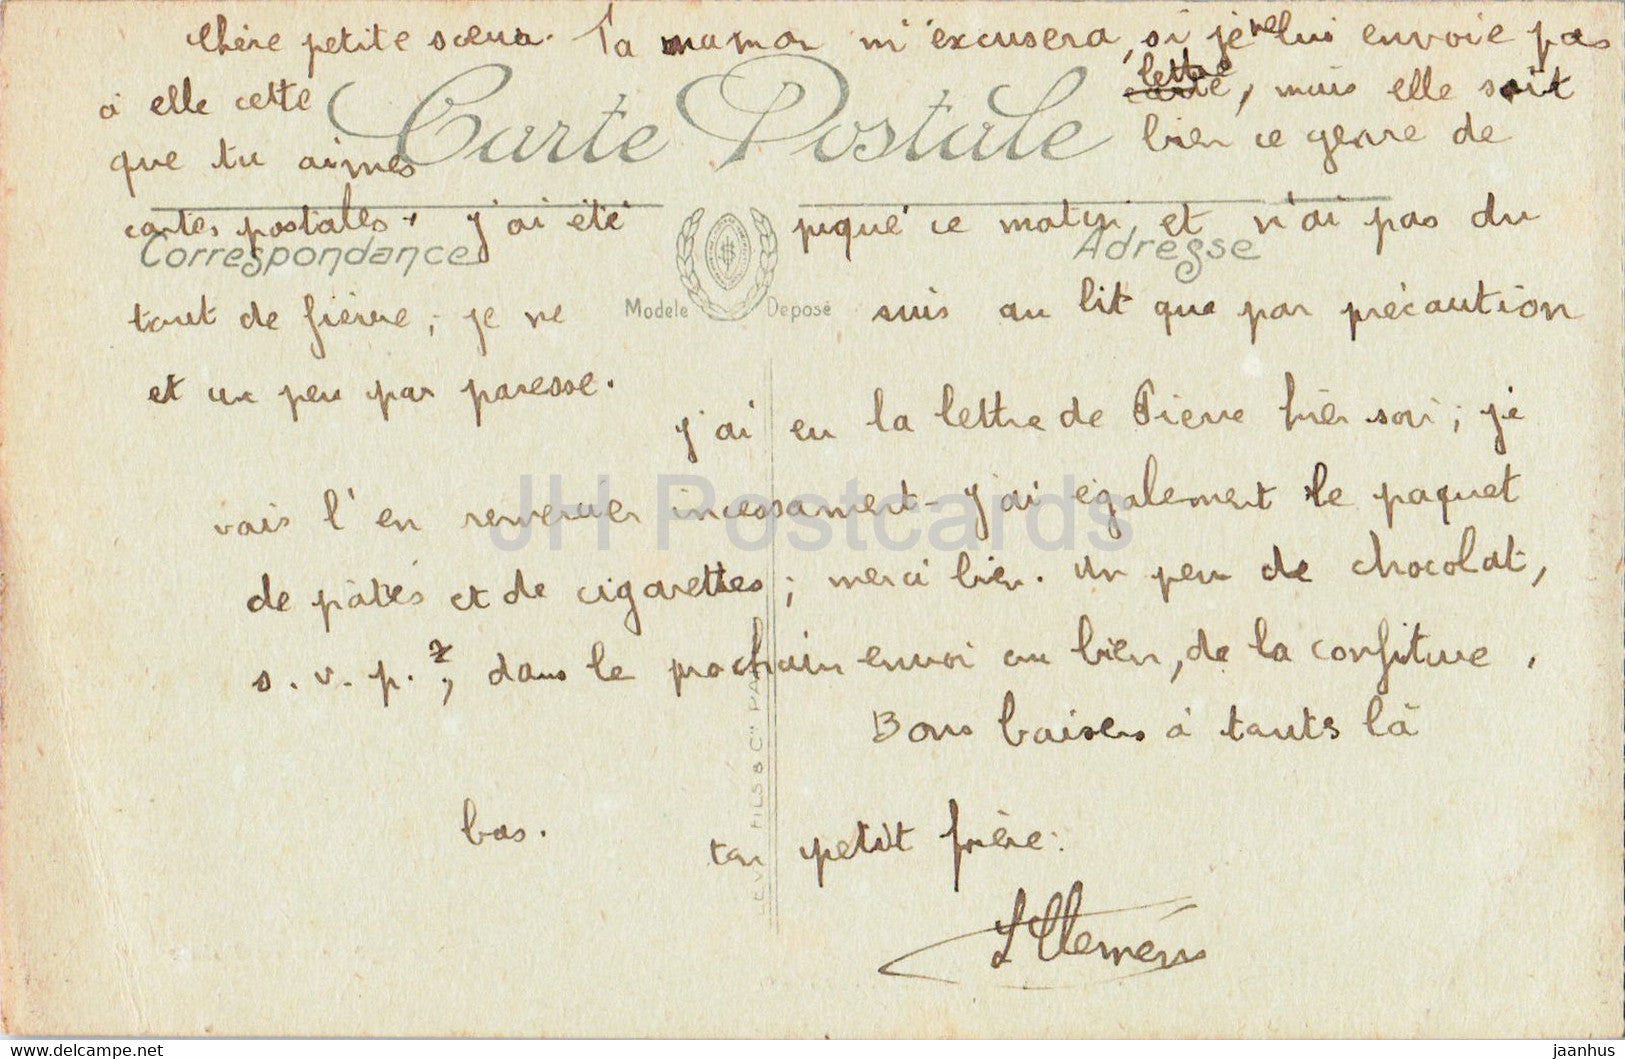 Chère petite sœur. Ta maman m'excusera, si je ne lui envoie pas
à elle cette lettre, mais elle sait
Carte Postale
que tu aimes bien ce genre de
cartes postales. j'ai été piqué ce matin, et n'ai pas du
Correspondance Adresse
tout de fièvre; je ne suis au lit que par précaution
Modèle Déposé
et un peu par paresse.
j'ai eu la lettre de Pierre hier soir; je
vais l'en remercier incessament - J'ai également le paquet
JH Postcards
de pâtés et de cigarettes; merci bien. Un peu de chocolat,
s.v.p.?; dans le prochain envoi ou bien, de la confiture.
Bons baisers à tauts là
bas. ton petit frère.
LEVY FILS & Cie PARIS
www.delcampe.net jaanhus